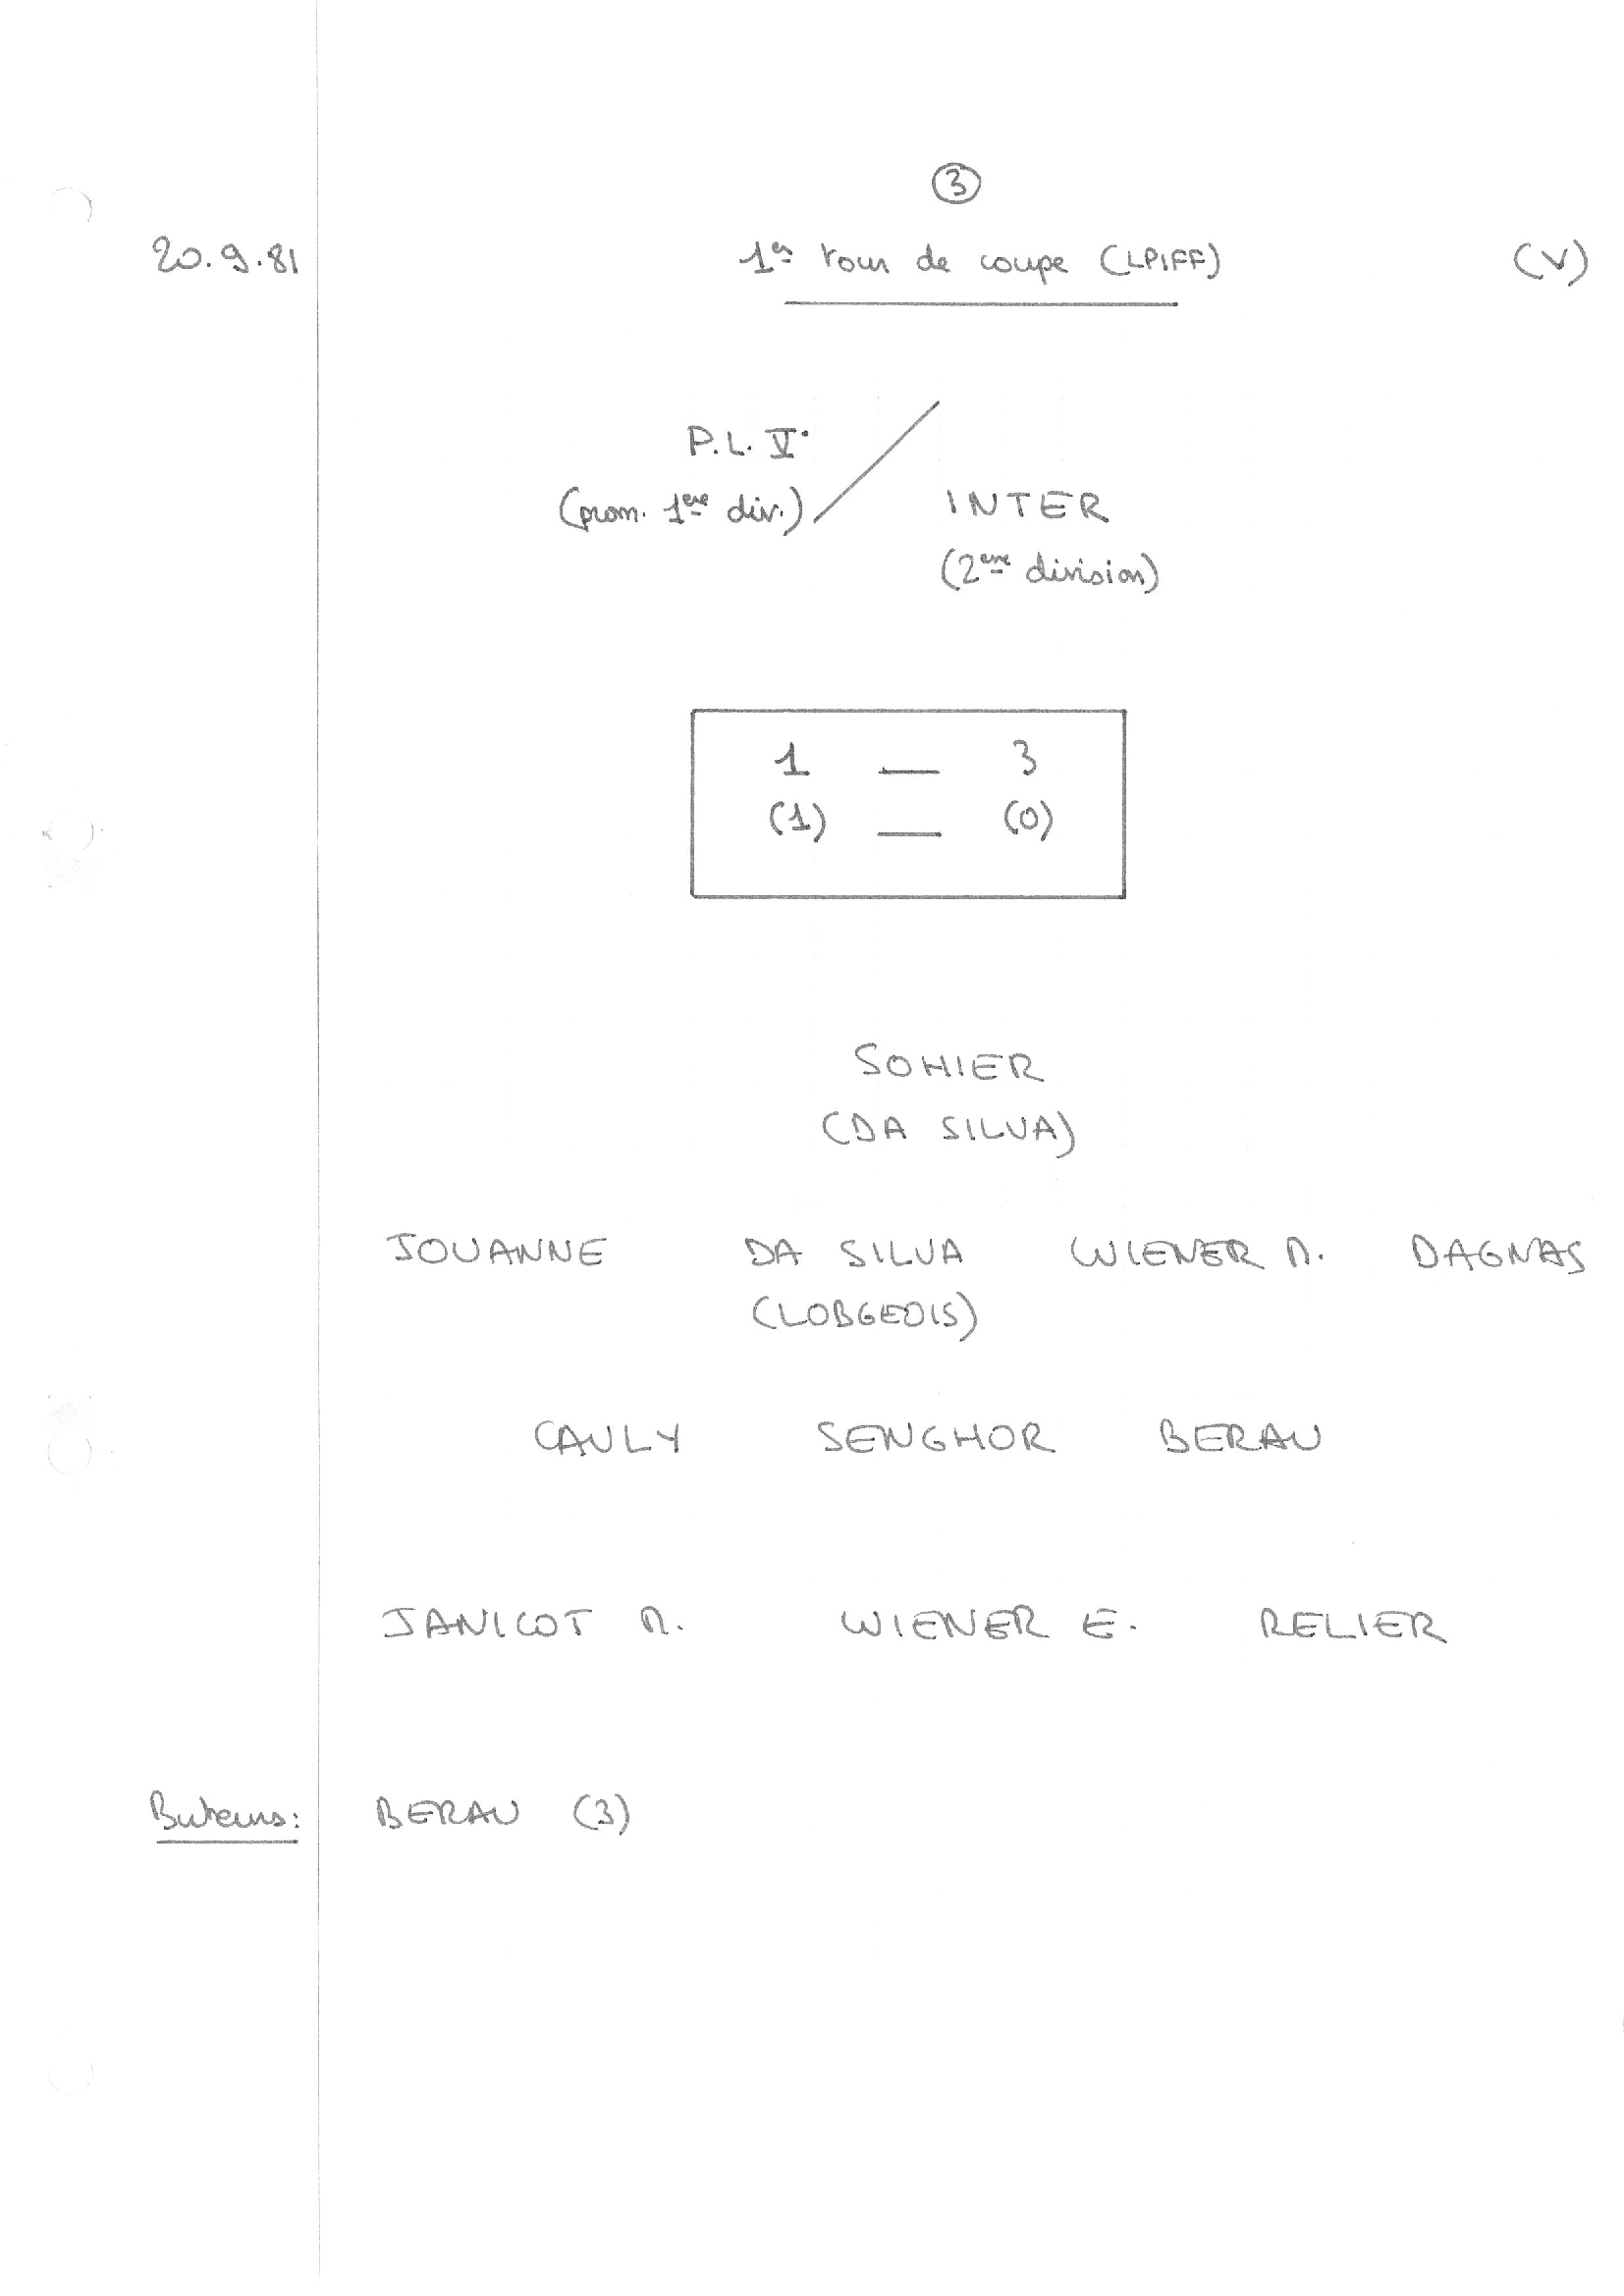 3
20.9.81 1er tour de coupe (LPIFF) (V)
P.L. V.
(prom. 1ère div.) / INTER
(2ème division)
1 — 3
(1) — (0)
SOHIER
(DA SILVA)
JOUANNE DA SILVA WIENER M. DAGNAS
(LOBGEOIS)
CAULY SENGHOR BERAU
JANICOT M. WIENER E. RELIER
Buteurs: BERAU (3)